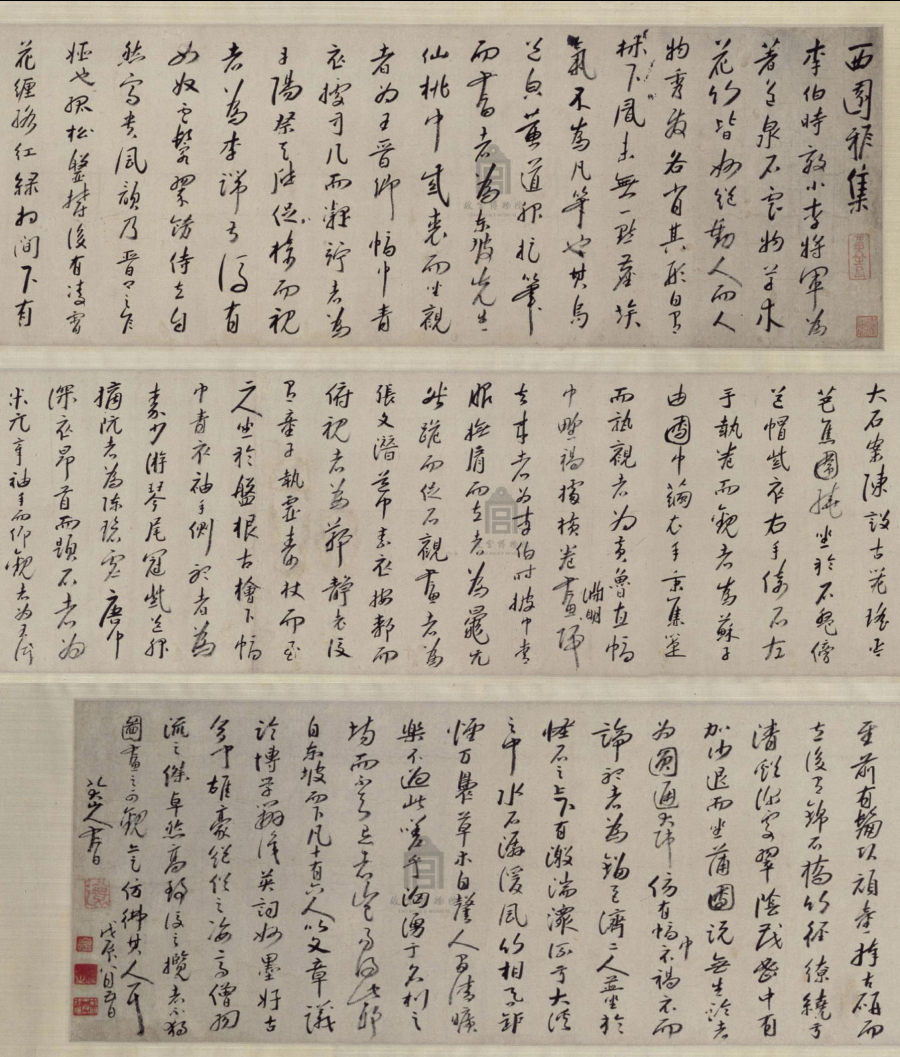 西園雅集
李伯時效小李將軍為
著色泉石雲物草木
花竹皆妙絕動人而人
物秀發各肖其形自有
林下風味無一點塵埃
氣不為凡筆也其烏
帽黃道服捉筆
而書者為東坡先生
仙桃巾紫裘而坐觀
者為王晉卿幅巾青
衣據方几而凝竚者為
丹陽蔡天啟捉椅而視
者為李端叔後有
女奴雲鬟翠飾侍立自
然富貴風韻乃晉卿之家
姬也孤松盤鬱後有凌霄
花纏絡紅綠相間下有
大石案陳設古器瑤琴
芭蕉圍繞坐於石盤傍
道帽紫衣右手倚石左
手執卷而觀者為蘇子
由團巾繭衣手秉蕉箑
而熟觀者為黃魯直幅
巾野褐據橫卷畫淵明歸
去來者為李伯時披巾青
服撫肩而立者為晁无
咎跪而捉石觀畫者為
張文潛道巾素衣按膝而
俯視者為鄭靖老後
有童子執靈壽杖而立
二人坐於盤根古檜下幅
巾青衣袖手側聽者為
秦少游琴尾冠紫道服
摘阮者為陳碧虛唐巾
深衣昂首而題石者為
米元章袖手而仰觀者為王仲
至前有頭頑童捧古硯而
立後有錦石橋竹徑繚繞於
清谿深處翠陰茂密中有
加沙退而坐蒲團說無生論者
為圓通大師傍有幅巾褐衣而
諦聽者為劉巨濟二人並坐於
怪石之上下有激湍潨流于大溪
之中水石潺湲風竹相吞爐
煙方裊草木自馨人間清曠
樂不過此嗟乎洶湧于名利之
場而不知退者豈易得此耶
自東坡而下凡十有六人以文章議
論博學辨識英詞妙墨好古
多聞雄豪絕俗之資高僧羽
流之傑卓然高致後之攬者不獨
圖畫之可觀亦足彷彿其人耳
八大山人書